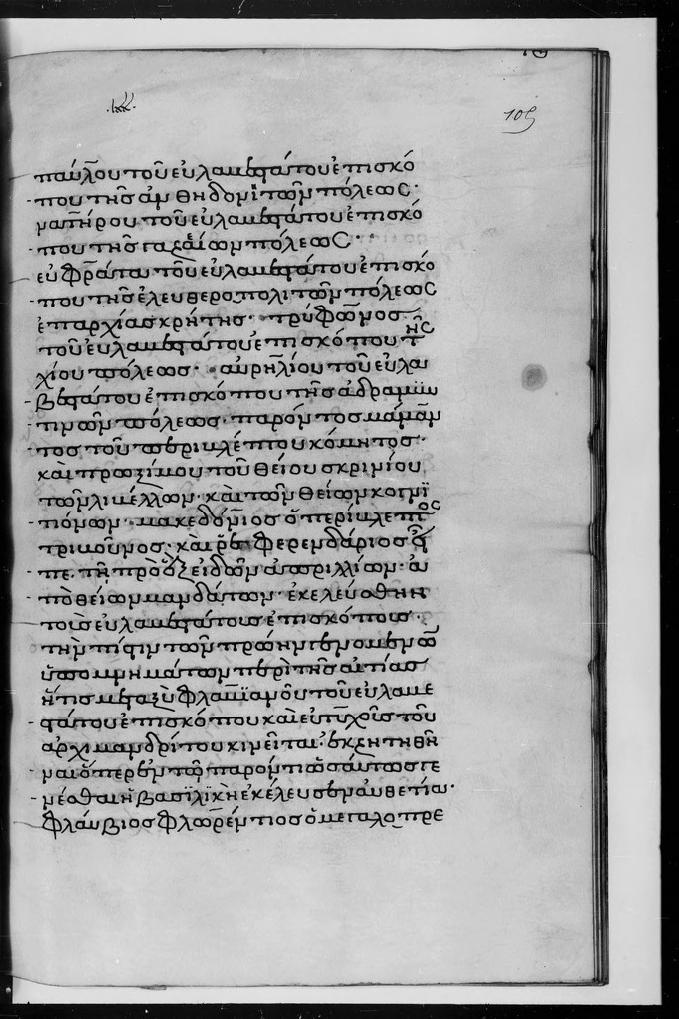 105
παύλου τοῦ εὐλαβεστάτου ἐπισκό
που τῆς ἀνθηδονίτῶν πόλεως·
ματήρου τοῦ εὐλαβεστάτου ἐπισκό
που τῆς γαζαίων πόλεως·
εὐφράτα τοῦ εὐλαβεστάτου ἐπισκό
που τῆς ἐλευθεροπολιτῶν πόλεως
ἐπαρχίας κρήτης· τρύφωνος
τοῦ εὐλαβεστάτου ἐπισκόπου τῆς
χίου πόλεως· αὐρηλίου τοῦ εὐλα
βεστάτου ἐπισκόπου τῆς ἀδραμϋν
τινῶν πόλεως· παρόντος μάμαν
τος τοῦ περιβλέπτου κόμητος·
καὶ προξίμου τοῦ θείου σκρινίου
τῶν λιβέλλων· καὶ τῶν θείων κογνϊ
τιόνων· μακεδόνιος ὁ περίβλεπτος
τριβοῦνος· καὶ ῥεφερενδάριος
εἶπε· τῇ πρὸ εἰδῶν ἀπριλλίων· ἀ
πὸ θείων μανδάτων· ἐκελεύσθην
τοῖς εὐλαβεστάτοις ἐπισκόποις·
τὴν πίστιν τῶν πρώην γενομένων
ὑπομνημάτων περὶ τῆς αἰτίας
ἥτις μεταξὺ φλαβϊανοῦ τοῦ εὐλαβε
στάτου ἐπισκόπου καὶ εὐτυχοῦς τοῦ
ἀρχιμανδρίτου κινεῖται· ἐκζητηθῆ
ναι ὅπερ ἐν τῷ παρόντι ὡσαύτως γε
νέσθαι ἡ βασιλϊκὴ ἐκέλευσεν αὐθεντία·
φλάυβιος φλωρέντιος ὁ μεγαλοπρε